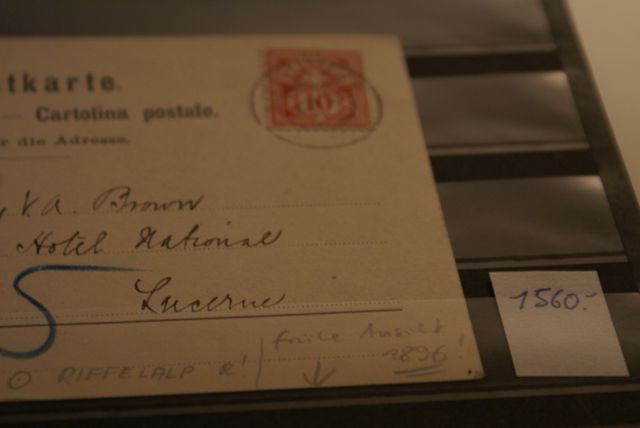 tkarte.
— Cartolina postale.
r die Adresse.
10
V. A. Brown
Hotel National
Lucerne
5
frühe Ansicht
1896!
RIFFELALP R!
1560.-